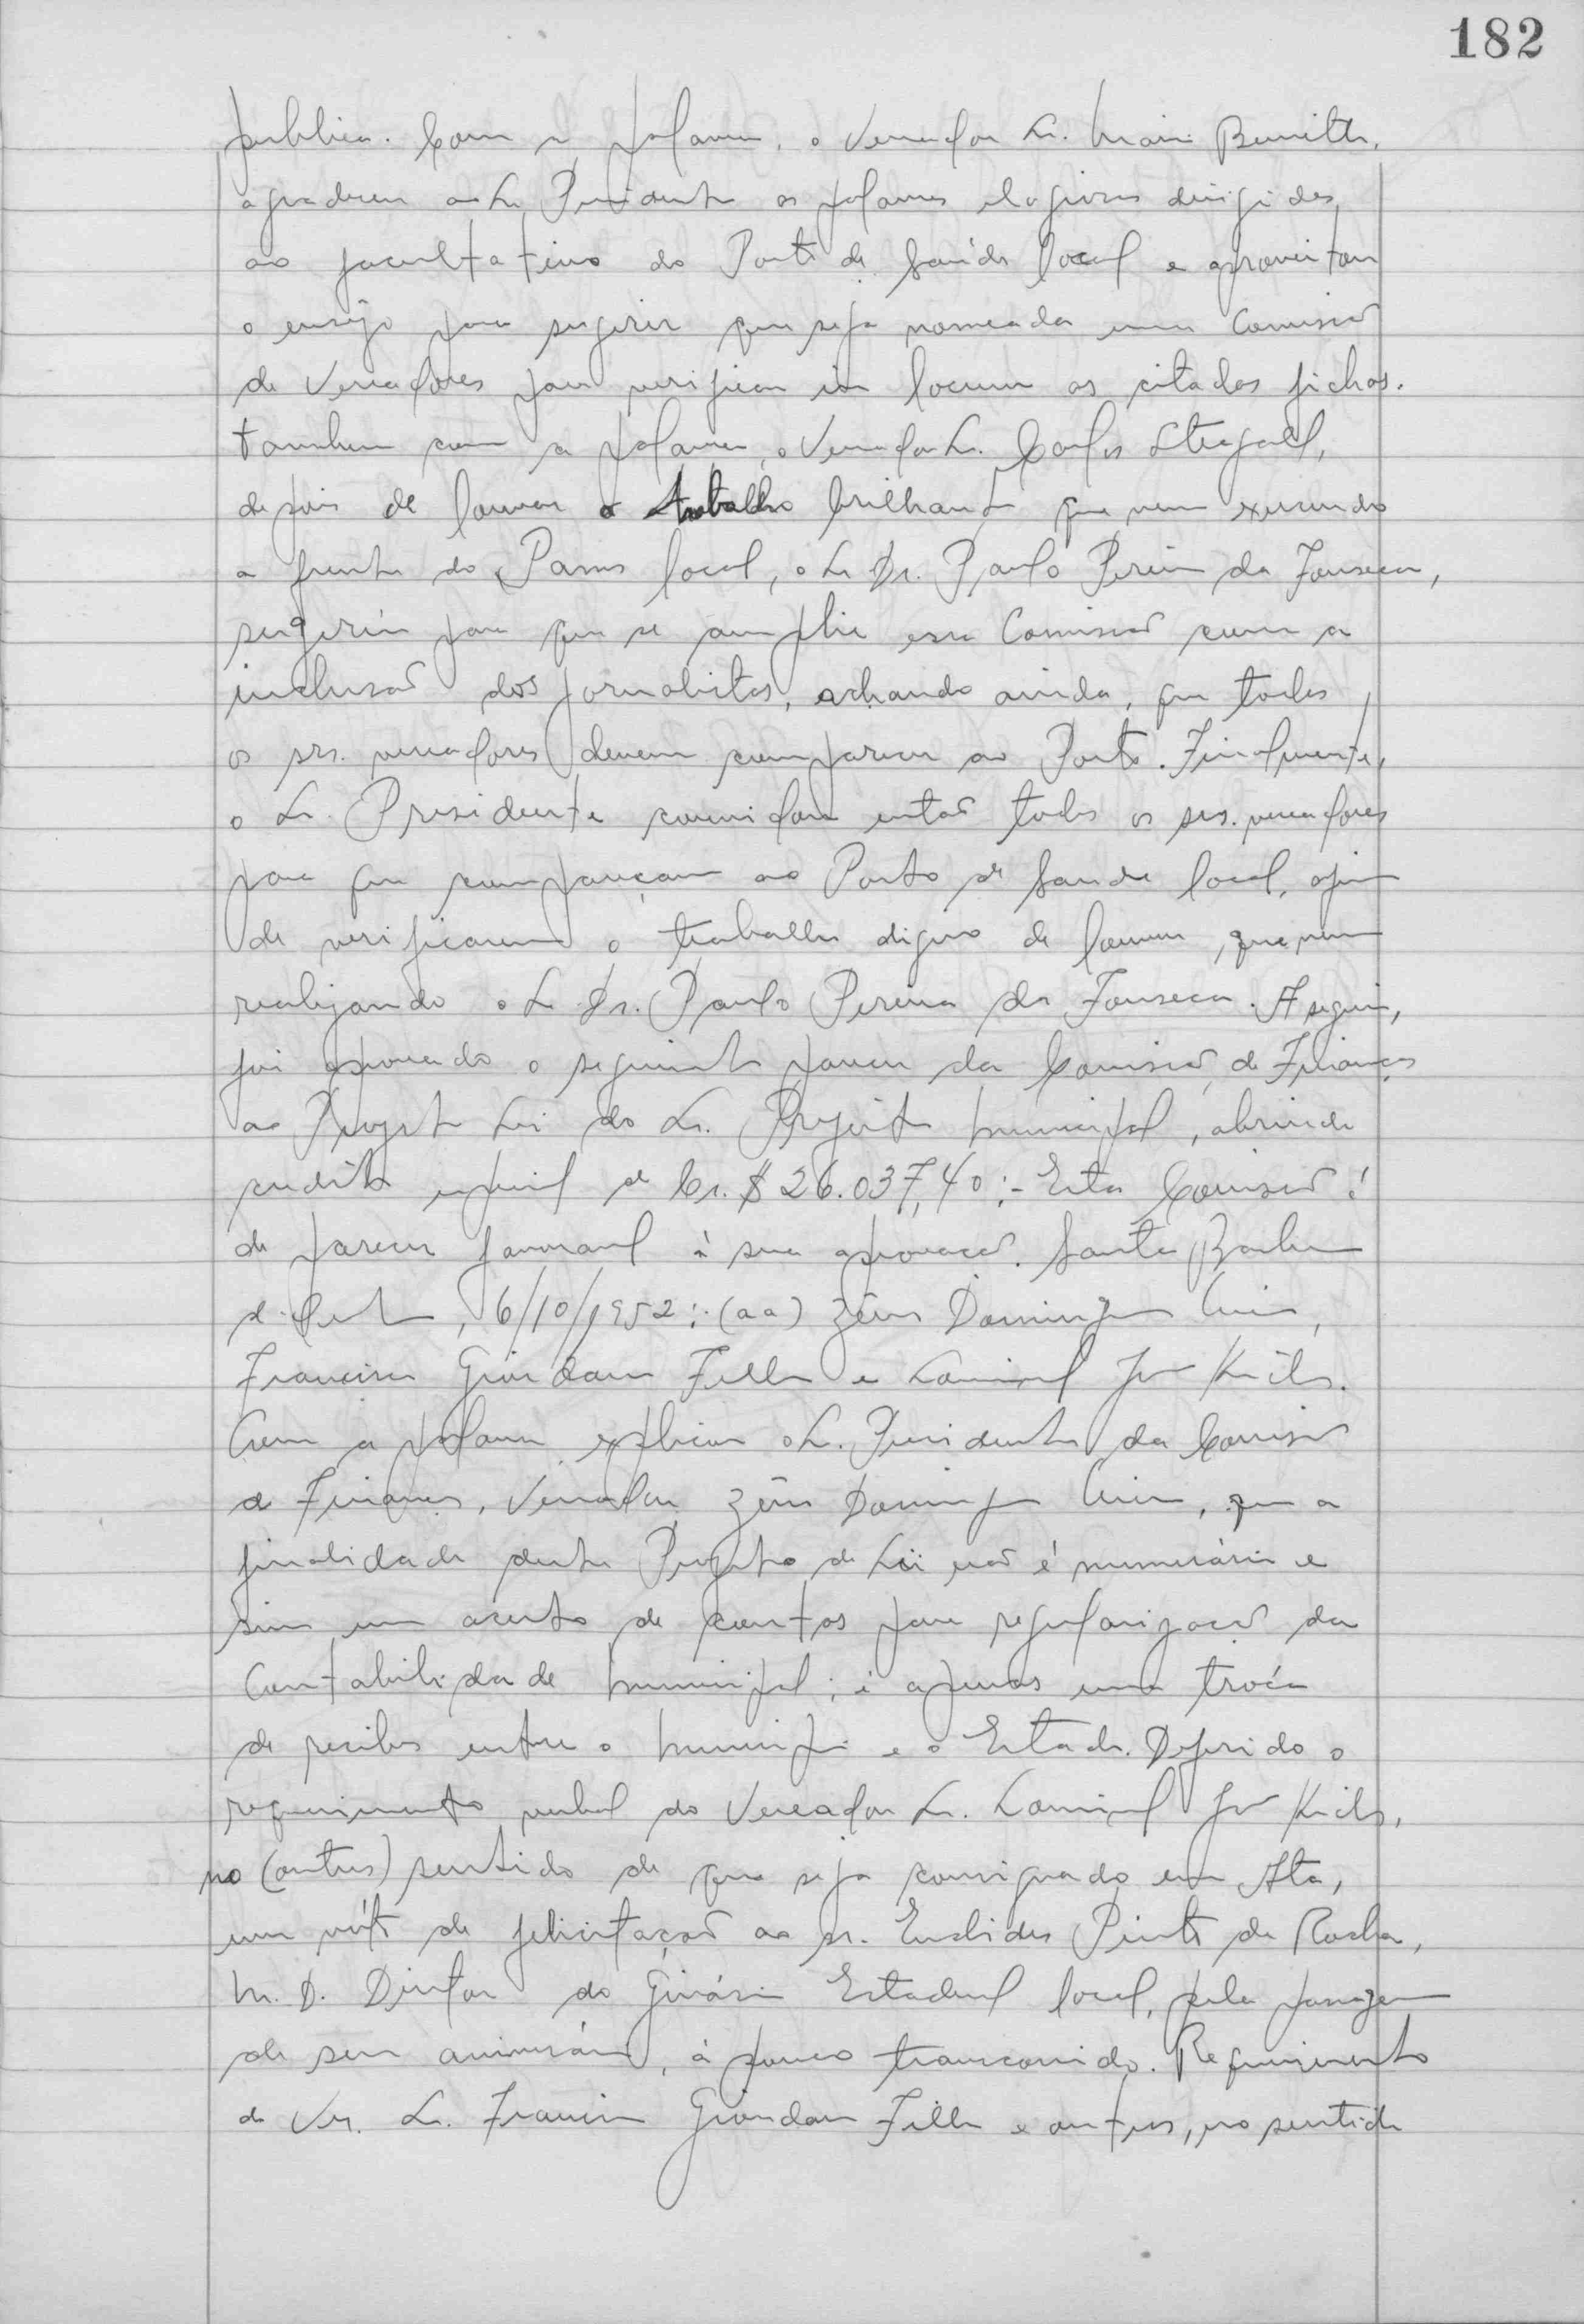 182
publica. Com a palavra, o Vereador Sr. Mario Benitto,
agradeceu ao Sr. Presidente as palavras elogiosas dirigidas
ao facultativo do Posto de Saúde local e aproveitou
o ensejo para sugerir que seja nomeada uma Comissão
de Vereadores para verificar in locum as citadas fichas.
Tambem com a palavra, o Vereador Sr. Carlos Stegall,
depois de louvar o trabalho brilhante que vem exercendo
a frente do Pamos local, o Sr. Dr. Paulo Pereira da Fonseca,
sugeriu para que se amplie essa Comissão com a
inclusão dos jornalistas, achando ainda, que todos
os srs. vereadores devem comparecer ao Posto. Finalmente,
o Sr. Presidente convidou então todos os srs. vereadores
para que compareçam ao Posto de Saude local, afim
de verificarem o trabalho digno de louvor, que vem
realizando o Sr. Dr. Paulo Pereira da Fonseca. A seguir,
foi aprovado o seguinte parecer da Comissão de Finanças
ao Projeto Lei do Sr. Prefeito Municipal, abrindo
credito especial de Cr.$ 26.037,40:- Esta Comissão é
de parecer favoravel à sua aprovação. Santa Barbara
d'Oeste, 6/10/1952:- (aa) Zêno Domingos
Francisco Giordano Filho e
Com a palavra explicou o Sr. Presidente da Comissão
de Finanças, Vereador Zêno Domingos que a
finalidade deste Projeto de Lei não é numerário e
sim um acerto de contas para regularização da
Contabilidade Municipal; é apenas uma tróca
de recibos entre o Municipio e o Estado. Deferido o
requerimento verbal do Vereador Sr.
no (outros) sentido de que seja consignado em Ata,
um vóto de felicitação ao sr. Euclides Pinto da Rocha,
M. D. Diretor do Ginásio Estadual local, pela passagem
de seu aniversário, à pouco transcorrido. Requerimento
do Ver. Sr. Francisco Giordano Filho e outros, no sentido